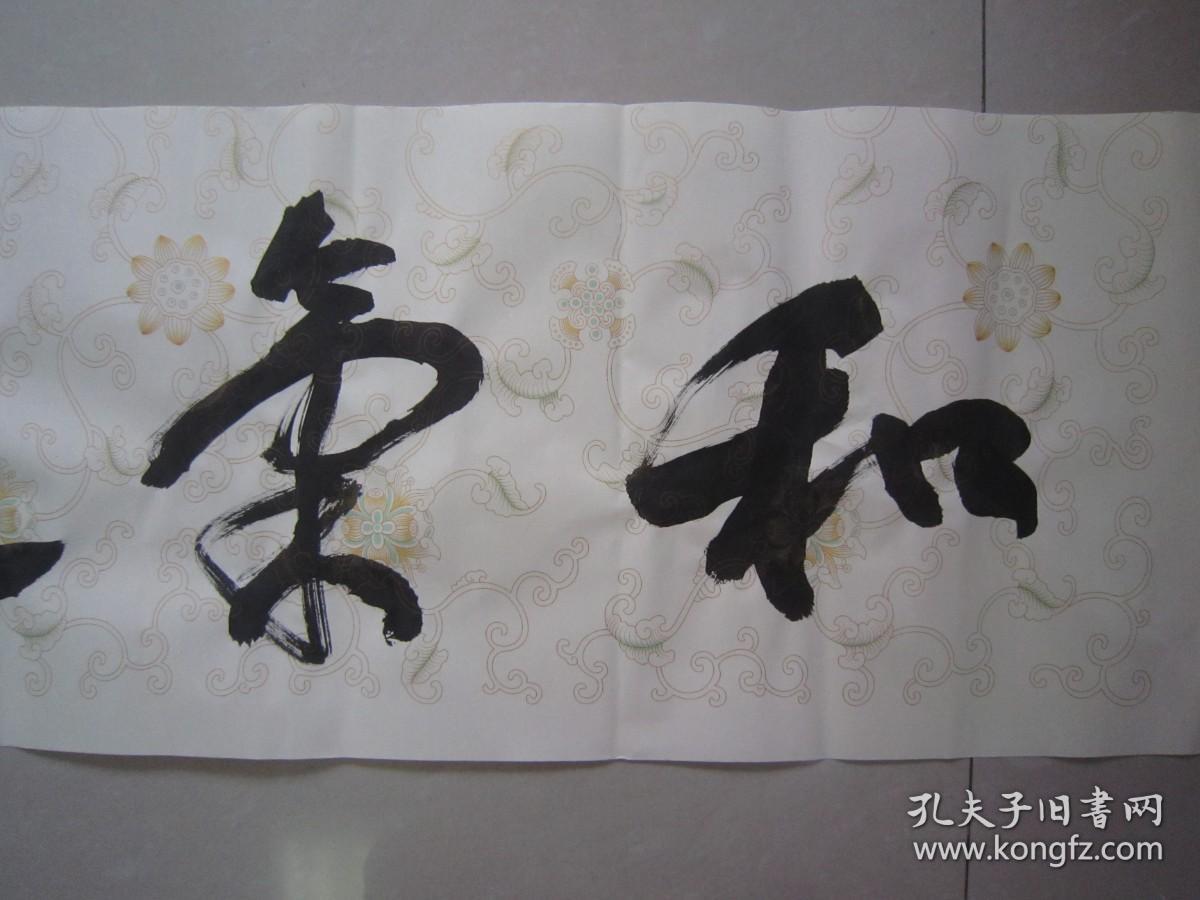 和氣
孔夫子旧書网
www.kongfz.com